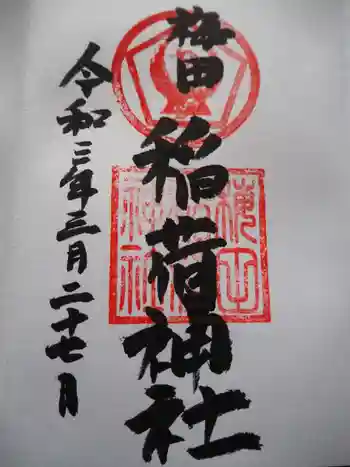 梅田
稲荷神社
令和三年三月二十七日